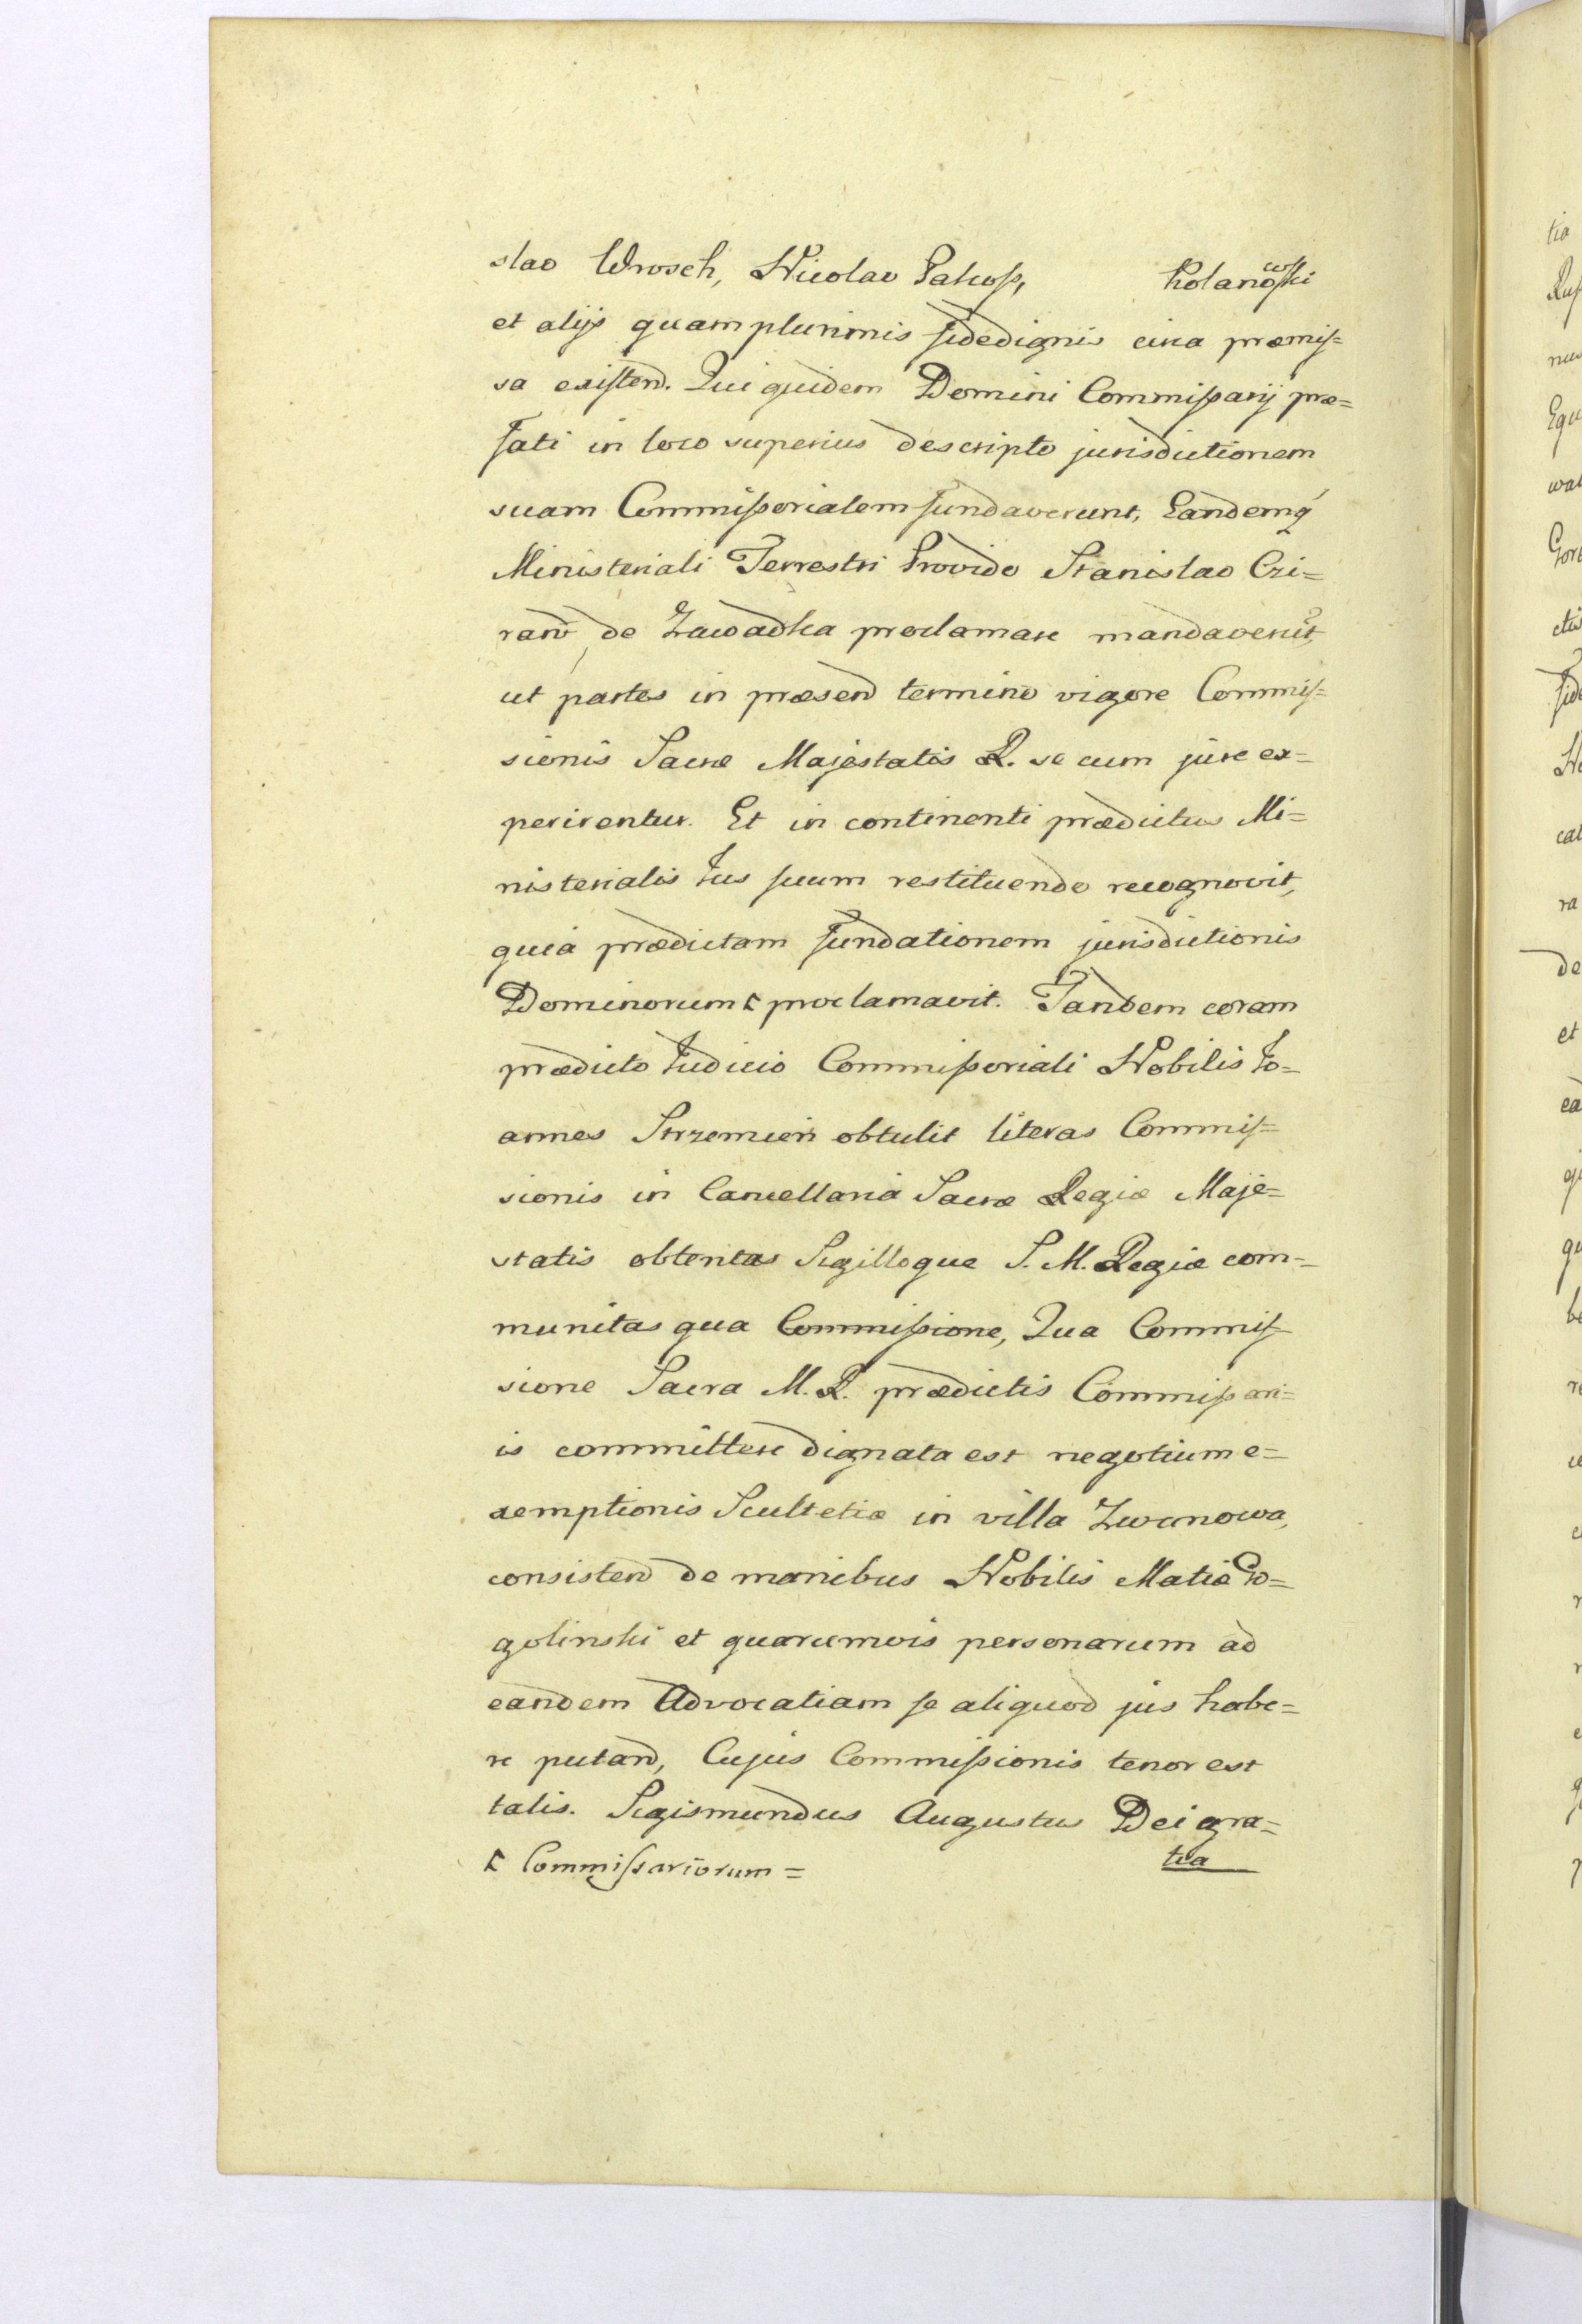 slao Wrosch, Nicolao Pakoſz, Kolanowſki
et alijs quamplurimis fidedignis circa præmiſ=
sa exiſten. Qui quidem Domini Commiſsarij præ=
fati in loco superius descripto jurisdictionem
suam Commiſsorialem fundaverunt, Eandemq
Ministeriali Terrestri Provido Stanislao Czi=
ran de Zawadka proclamare mandaverūt,
ut partes in præsen termino vigore Commiſ=
sionis Sacræ Majestatis R. se cum jure ex=
perirentur. Et in continenti prædictus Mi=
nisterialis Jus ſuum restituendo recognovit,
quia prædictam fundationem jurisdictionis
Dominorum ꓘ proclamavit. Tandem coram
prædicto Judicio Commiſsoriali Nobilis Jo=
annes Strzemien obtulit literas Commiſ=
sionis in Cancellaria Sacræ Regiæ Maje=
statis obtentas Sigilloque S. M. Regiæ com=
munitas qua Commiſsione, Qua Commiſ=
sione Sacra M. R. prædictis Commiſsari=
is committere dignata est negotium e=
xemptionis Scultetiæ in villa Zwanowa,
consisten de manibus Nobilis Matiæ Go=
golinski et quarumvis personarum ad
eandem Advocatiam ſe aliquod jus habe=
re putan, Cujus Commiſsionis tenor est
talis. Sigismundus Augustus Dei gra=
ꓘ Commiſsariorum = tia